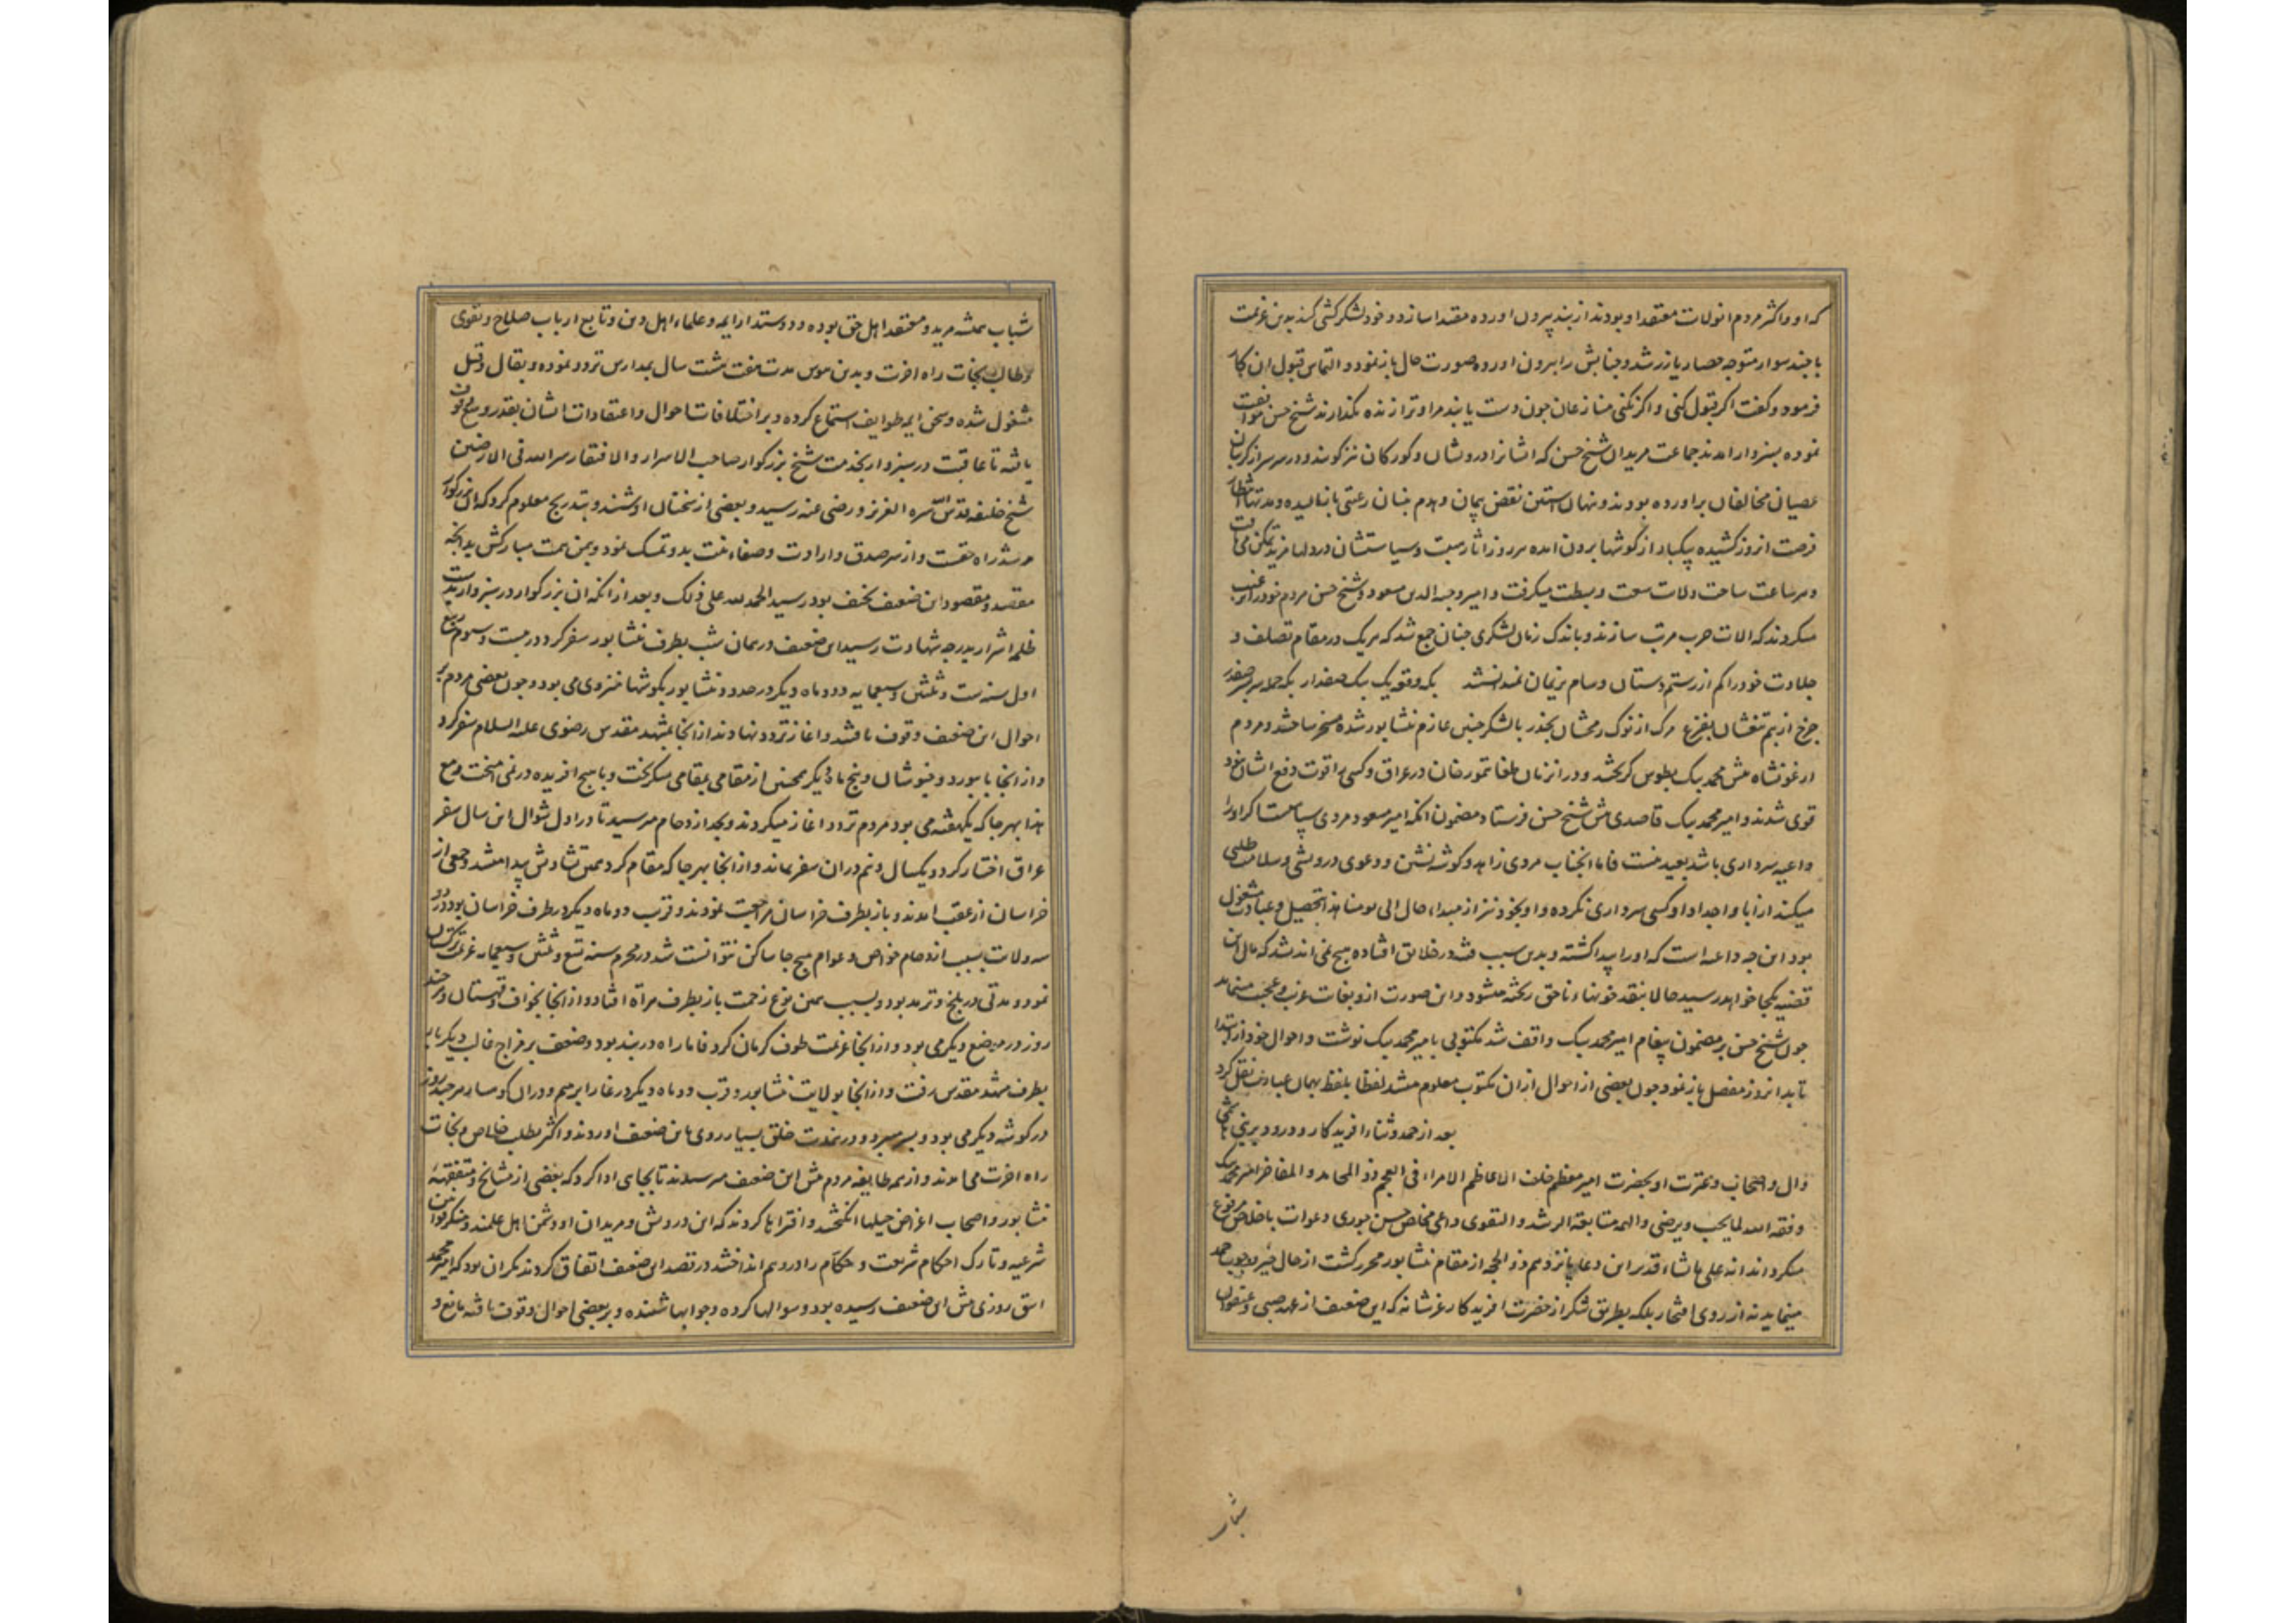 که او و اکثر مردم آن ولات معتقد او بودند از بند بیرون آورده مقتدا سازد و خود لشکرکشی کند بدین عزیمت
با چند سوار متوجه حصار یازر شد و جنابش را بیرون آورده صورت حال باز نمود و التماس قبول آن کار
فرمود و گفت اگر قبول کنی و اگر نکنی منازعان چون دست یابند مرا و ترا زنده نگذارند شیخ حسن موافقت
نموده بسبزوار آمدند جماعت مریدان شیخ حسن که ایشانرا درویشان و کورکان نیز گویند و در سر سر از گریبان
عصیان مخالفان برآورده بودند و نهال استین نقض پیمان و هدم بنیان رعیتی بازمالیده و مدتها انتظار
فرصت آنروز کشیده بیکبار از گوشها برون آمده هر روز آثار هیبت و سیاستشان در دلها مزید تمکن می یافت
و هر ساعت ساحت ولات سعت و بسطت میگرفت و امیر وجیه الدین مسعود و شیخ حسن مردم خود را ترغیب
میکردند که آلات حرب مرتب سازند و باندک زمان لشکری چنان جمع شد که هریک در مقام تصلف و
جلادت خود را کم از رستم دستان و سام نریمان نمیدانستند یکه و قویک بیک صفدار یکه حمله بر هر صفدر
چرخ از بیم تیغشان بفزع مرگ از نوک رمحشان بحذر با لشکر چنین عازم نشابور شده مسخر ساختند و مردم
ارغونشاه پیش محمد بیک بطوس گریختند و در آن زمان طغا تیمور خان در عراق و کسی را قوت دفع ایشان نبود
قوی شدند و امیر محمد بیک قاصدی پیش شیخ حسن فرستاد مضمون آنکه امیر مسعود مردی سپاهیست اگر او را
داعیه سرداری باشد بعید نیست فاما آنجناب مردی زاهد و گوشه نشین و دعوی درویشی و سلامت طلبی
میکند از آبا و اجداد او کسی سرداری نکرده و او بخود نیز از مبداء حال الی یومنا هذا بتحصیل و عبادت مشغول
بود این چه داعیه است که او را پیدا گشته و بدین سبب فتنه در خلائق افتاده هیچ نمی اندیشد که مآل این
قضیه بکجا خواهد رسید حالا بنقد خونهاء ناحق ریخته میشود و این صورت ازو بغایت غریب و عجیب مینماید
چون شیخ حسن بر مضمون پیغام امیر محمد بیک واقف شد مکتوبی بامیر محمد بیک نوشت و احوال خود از ابتدا
تا بدانروز مفصل باز نمود و چون بعضی از احوال از آن مکتوب معلوم میشد لفظا بلفظ بهمان عبارت نقل کرد
بعد از حمد و ثناء آفریدگار و درود بر نبی هاشمی
و آل و اصحاب و عترت او بحضرت امیر معظم خلف الاعاظم الامراء فی العجم ذو المحامد و المفاخر امیر محمد بیک
وفقه الله لما یحب و یرضی و الهمه متابعة الرشد و التقوی داعی مخلص حسن جوری دعوات باخلاص مرفوع
میگرداند انه علی ما یشاء قدیر این دعا پانزدهم ذو الحجه از مقام نشابور محرر گشت از حال خیر موجب حمد
مینماید نه از روی افتخار بلکه بطریق شکر از حضرت آفریدگار عز شانه که این ضعیف از عهد صبی و عنفوان
شباب
شباب همیشه مرید و معتقد اهل حق بوده و دوستدار ایمه و علماء اهل دین و تابع ارباب صلاح و تقوی
و طالب نجات راه آخرت و بدین هوس مدت هفت هشت سال بمدارس تردد نموده و بقال و قیل
مشغول شده و سخن ایمه طوایف استماع کرده و بر اختلافات احوال و اعتقادات ایشان بقدر وسع وقوف
یافته تا عاقبت در سبزوار بخدمت شیخ بزرگوار صاحب الاسرار و الافتقار سر الله فی الارضین
شیخ خلیفه قدس الله سره العزیز و رضی عنه رسید و بعضی از سخنان او شنید و بتدریج معلوم کرد که آن بزرگوار
مرشد راه حقست و از سر صدق و ارادت و صفاء نیت بدو تمسک نمود و بیمن همت مبارکش بدانچه
مقصد و مقصود این ضعیف نحیف بود رسید الحمد لله علی ذلک و بعد از آنکه آن بزرگوار در سبزوار بدست
ظلمه اشرار بدرجه شهادت رسید این ضعیف در همان شب بطرف نشابور سفر کرد در بیست و سوم ربیع
اول سنه ست و ثلثین و سبعمایه و دو ماه دیگر در حدود نشابور بگوشها منزوی می بود و چون بعضی مردم بر
احوال این ضعیف وقوف یافتند و آغاز تردد نهادند از آنجا بمشهد مقدس رضوی علیه السلام سفر کرد
و از آنجا بابیورد و خبوشان و پنج ماه دیگر همچنین از مقامی بمقامی میگریخت و با هیچ آفریده در نمی آمیخت و مع
هذا بهرجا که یکهفته می بود مردم تردد آغاز میکردند و بحد ازدحام میرسید تا در اول شوال این سال سفر
عراق اختیار کرد و یکسال و نیم در آن سفر بماند و از آنجا بهرجا که مقام کرد همین تشاوش پیدا میشد و جمعی از
خراسان از عقب آمدند و باز بطرف خراسان مراجعت نمودند و قرب دو ماه دیگر در طرف خراسان بود و در
سه ولات بسبب ازدحام خواص و عوام هیچ جا ساکن نتوانست شد در محرم سنه تسع و ثلثین و سبعمایه عزیمت ترکستان
نمود و مدتی در بلخ و ترمد بود و بسبب همین نوع زحمت باز بطرف هراة افتاد و از آنجا بخواف و قهستان و هر چند
روز در موضع دیگر می بود و از آنجا عزیمت طرف کرمان کرد فاما راه در بند بود و ضعف بر مزاج غالب دیگر باره
بطرف مشهد مقدس رفت و از آنجا بولایت نشابور و قرب دو ماه دیگر در غار ابرهیم و در آن کوهسار هر چند روز
در گوشه دیگر می بود و بسر میبرد و درین مدت خلق بسیار روی باین ضعیف آوردند و اکثر بطلب خلاص و نجات
راه آخرت می آمدند و از همه طایفه مردم پیش این ضعیف میرسیدند تا بجایی ادا کرد که بعضی از مشایخ و متفقهه
نشابور و اصحاب اغراض حیلها انگیختند و افتراها کردند که این درویش و مریدان او دشمن اهل علمند و منکر قوانین
شرعیه و تارک احکام شریعت و حکام را در وهم انداختند و در قصد این ضعیف اتفاق کردند مگر آن بود که امیر محمد
اسق روزی پیش این ضعیف رسیده بود و سوالها کرده و جوابها شنیده و بر بعضی احوال وقوف یافته مانع و